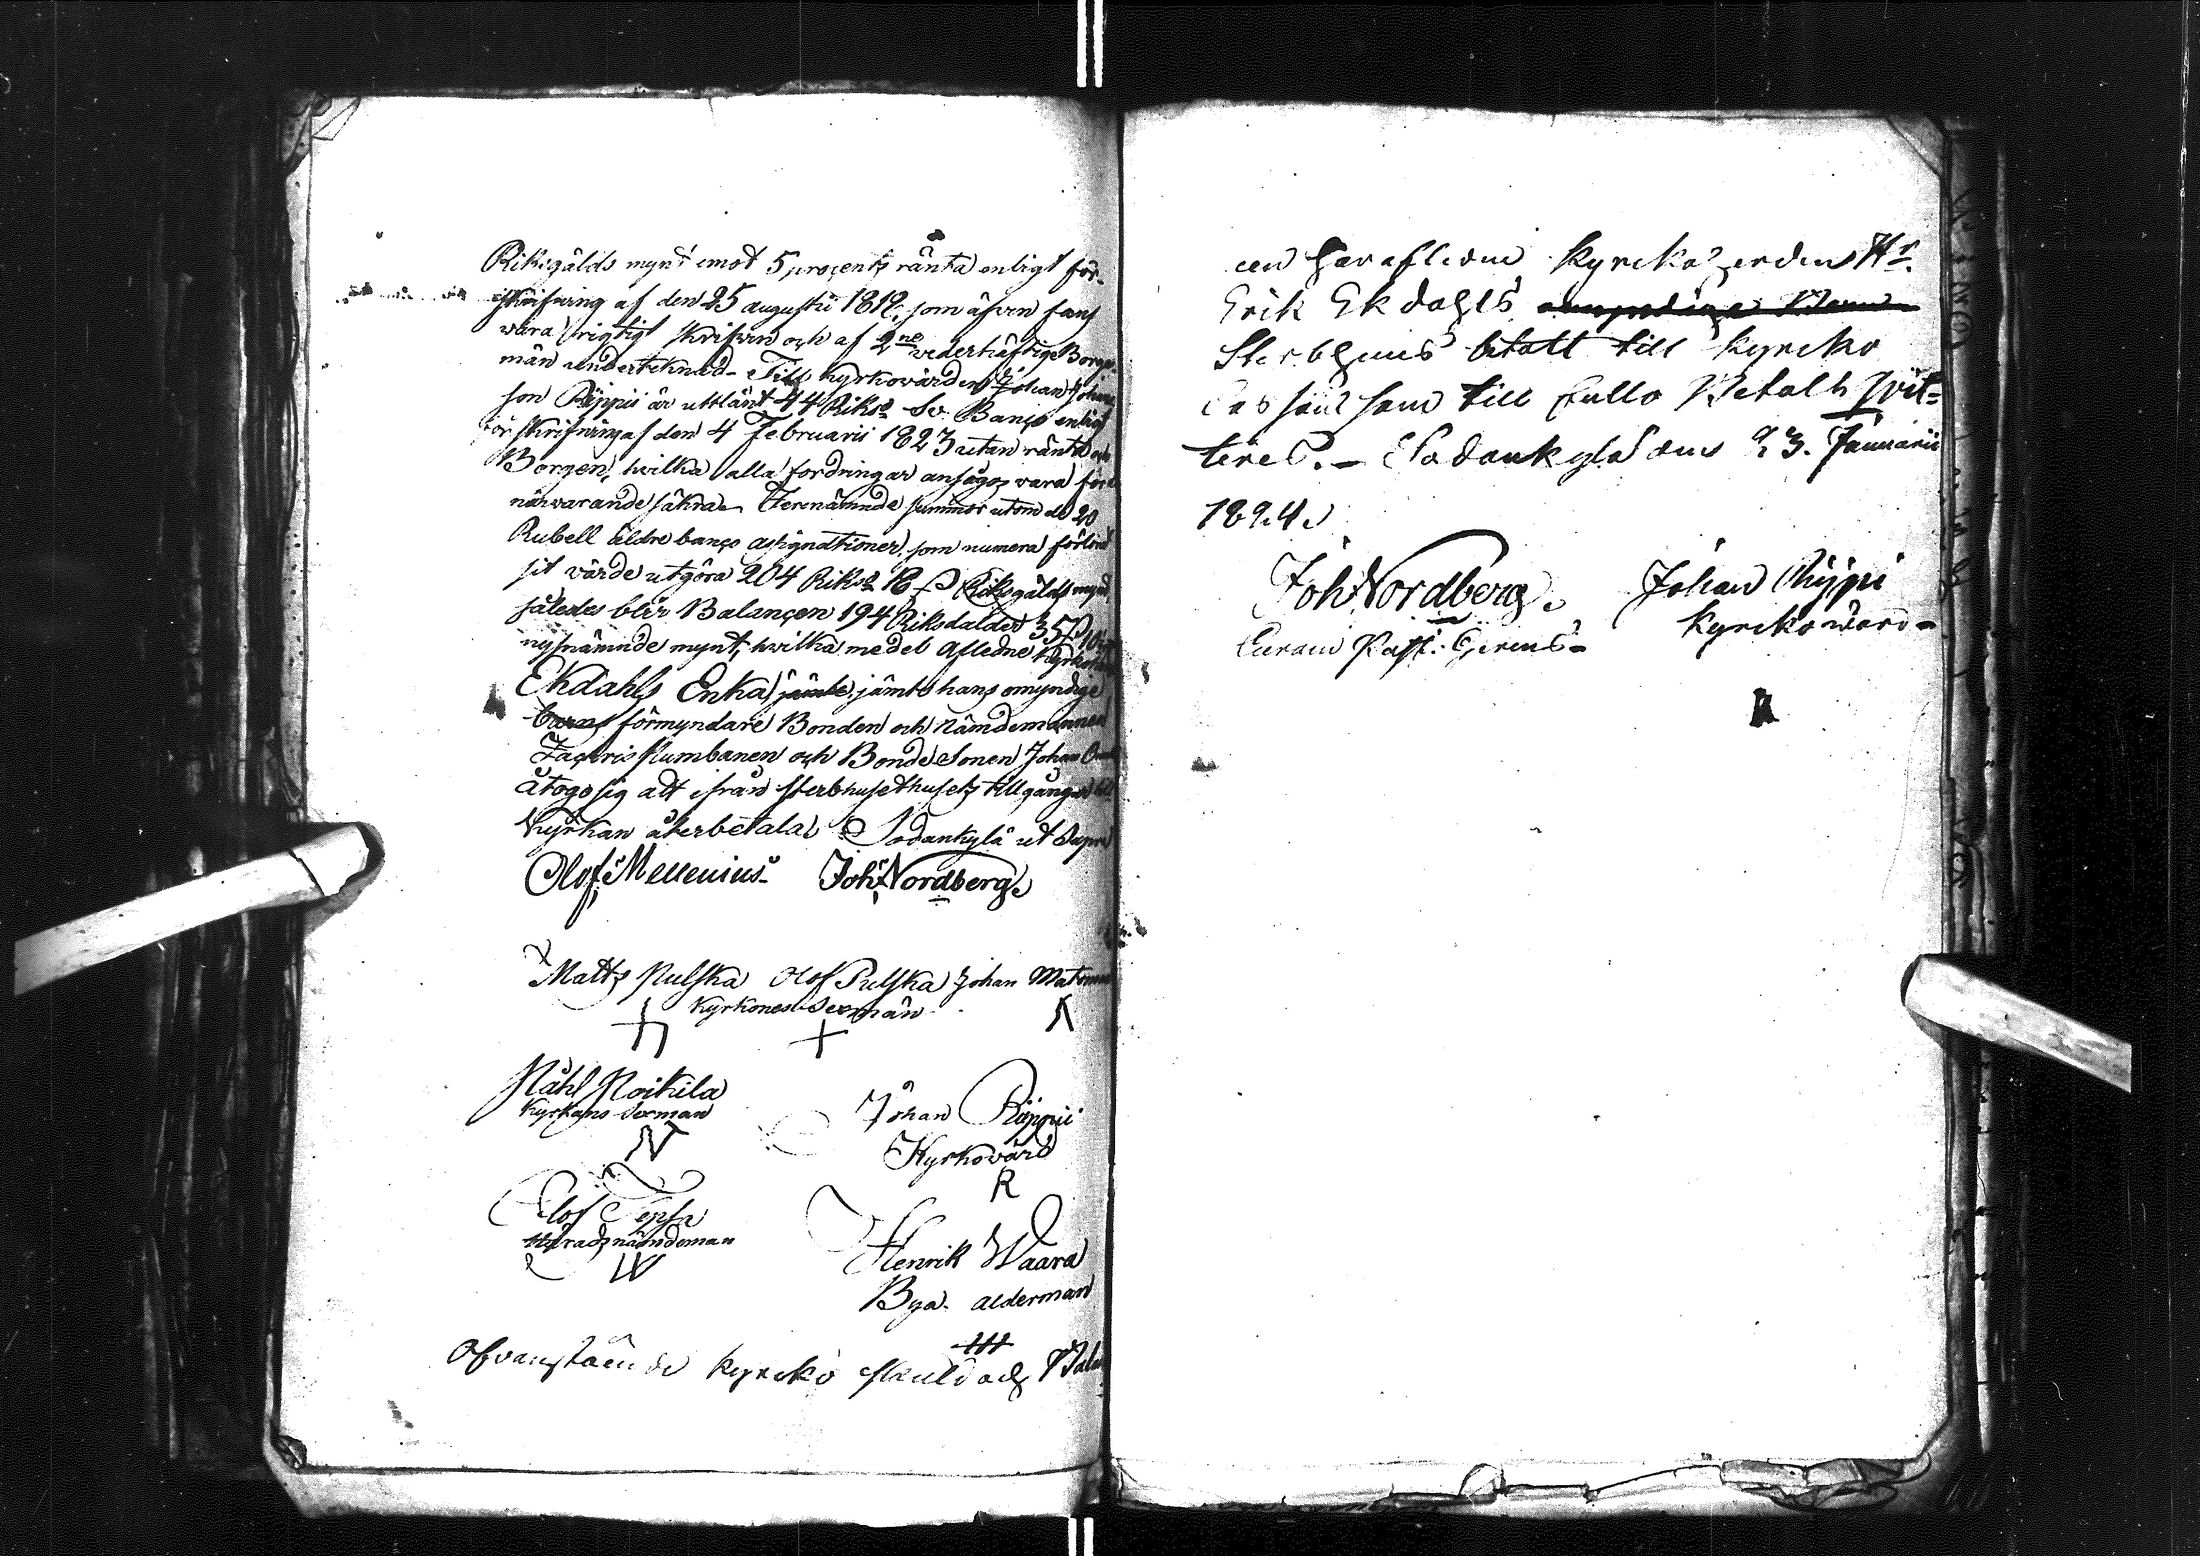 Riksgälds mynt emot 5 proçents ränta enligt för-
skrifning af den 25 augustii 1818, som äfven fans
vara rigtigt skrifven och af 2ne vederhäftige Borges-
män underteknad - Till kyrkovärden Johan Johans
son Rippii är uttlänt 44 Riksd Sv. Banço enligt
förskrifning af den 4 Februarii 1823 utan ränta och
Borgen, hvilka alla fordringar ansågos vara för
närvarande säkra. Förenämnde summor utom de 20
Rubell äldre banço assignationer, som numera förlorat
sit värde utgöra 204 Riksd 18 s Riksgälds mynt
således blir Balançen 194 Riksdaler 35
nyssnämnde mynt, hvilka medel Afledne Kyrkov
Ekdahls Enka jämte jämte hans omyndige
barns förmyndare Bonden och Nämdemannen
Zachris Kumbanen och Bonde Sonen Johan
åtogo sig att ifrån sterbhusethusets tillgångar till
Kyrkan återbetala Sodankylä ut Supra
Olof Mellenius Joh: Nordberg
Matts Pulska Olof Pulska Johan
Kyrkones Sexmän
Påhl Poikila
Kyrkans Sexman
Johan Rippii
Kyrkovärd
R
Olof
Häradznämndeman
Henrik Waara
Bya. alderman
Ofvanstående kyrcko skuld och Balan
cen har afledne Kyrcko herdens Hr.
Erik Ekdahls
Sterbhuus betalt till kyrcko
Cassan som till fullo Betalt qvit-
teres. - Sodankylä den 23. Januarii
1824.
Joh: Nordberg. Johan Rippi
Kyrckovärd -
Curam Past: Gerens -
R